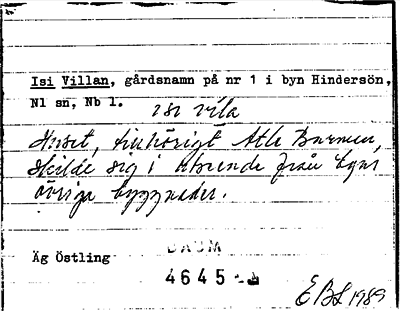 Isi Villan, gårdsnamn på nr 1 i byn Hindersön,
Nl sn, Nb l.
isi vila
Huset, tillhörigt Atle Burman,
skilde sig i utseende från byns
övriga byggnader.
Äg Östling
DAUM
4645
EBL 1989